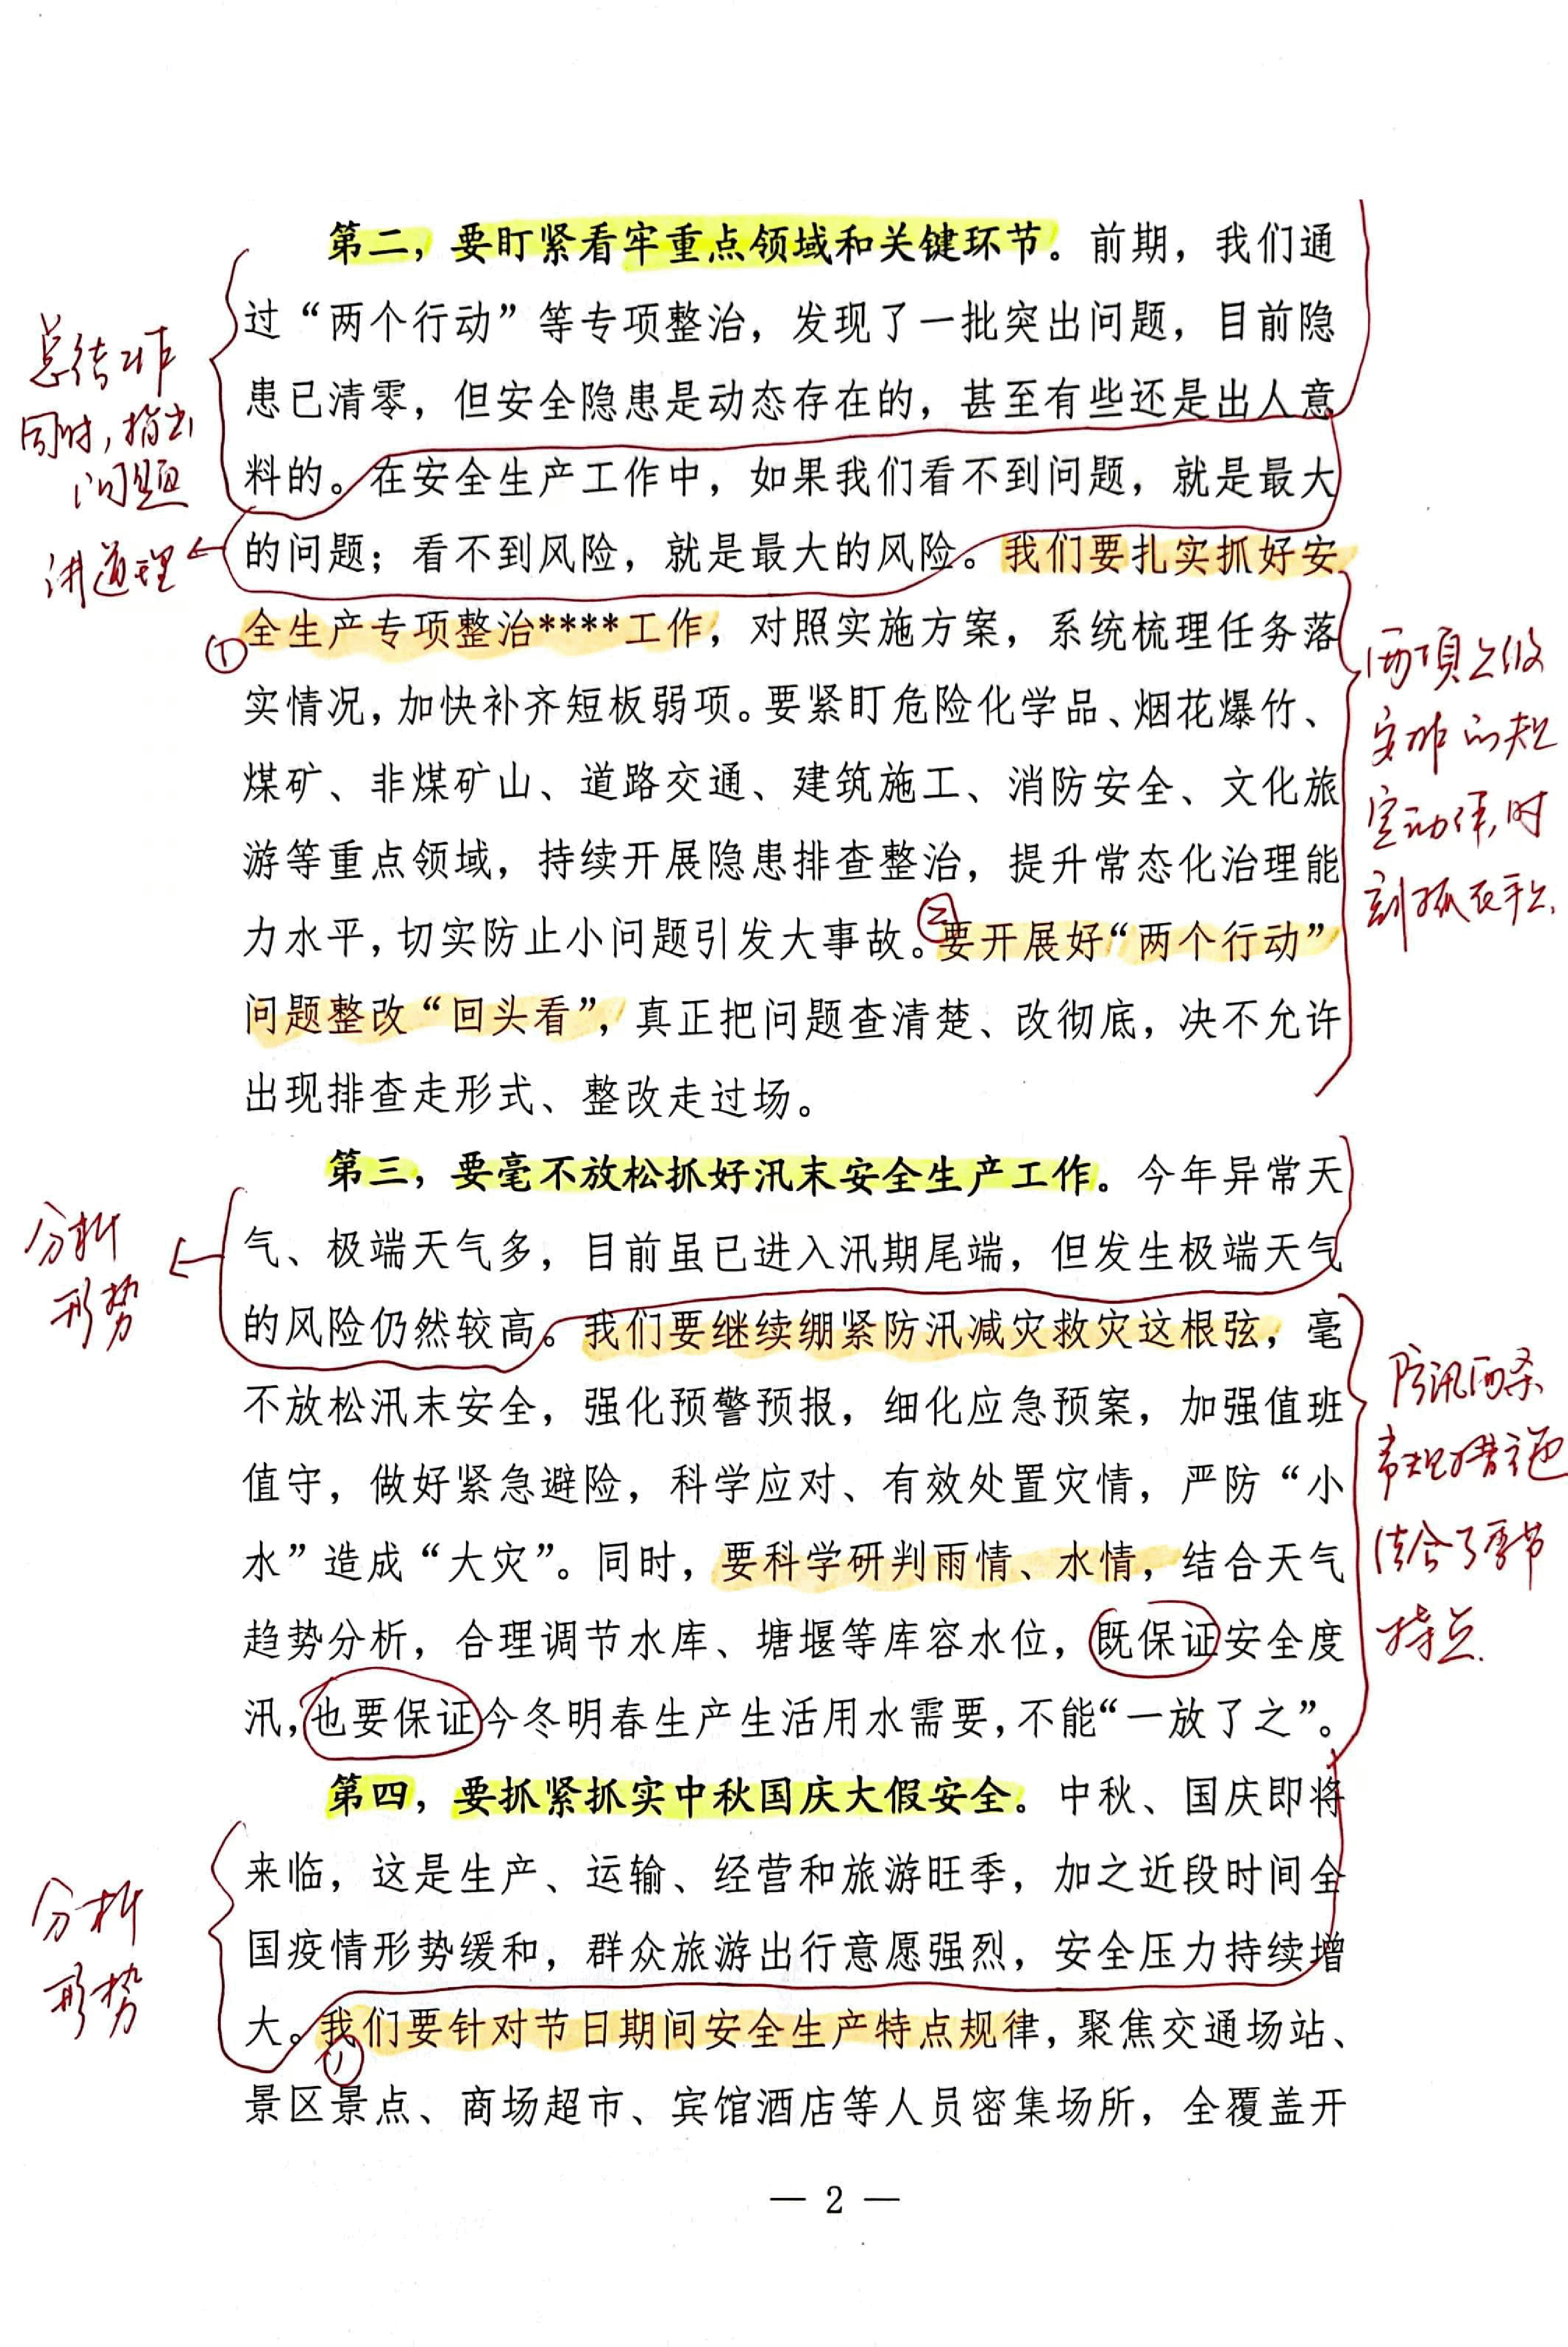 第二，要盯紧看牢重点领域和关键环节。前期，我们通
过“两个行动”等专项整治，发现了一批突出问题，目前隐
患已清零，但安全隐患是动态存在的，甚至有些还是出人意
料的。在安全生产工作中，如果我们看不到问题，就是最大
的问题；看不到风险，就是最大的风险。我们要扎实抓好安
全生产专项整治****工作，对照实施方案，系统梳理任务落
实情况，加快补齐短板弱项。要紧盯危险化学品、烟花爆竹、
煤矿、非煤矿山、道路交通、建筑施工、消防安全、文化旅
游等重点领域，持续开展隐患排查整治，提升常态化治理能
力水平，切实防止小问题引发大事故。要开展好“两个行动”
问题整改“回头看”，真正把问题查清楚、改彻底，决不允许
出现排查走形式、整改走过场。
第三，要毫不放松抓好汛末安全生产工作。今年异常天
气、极端天气多，目前虽已进入汛期尾端，但发生极端天气
的风险仍然较高。我们要继续绷紧防汛减灾救灾这根弦，毫
不放松汛末安全，强化预警预报，细化应急预案，加强值班
值守，做好紧急避险，科学应对、有效处置灾情，严防“小
水”造成“大灾”。同时，要科学研判雨情、水情，结合天气
趋势分析，合理调节水库、塘堰等库容水位，既保证安全度
汛，也要保证今冬明春生产生活用水需要，不能“一放了之”。
第四，要抓紧抓实中秋国庆大假安全。中秋、国庆即将
来临，这是生产、运输、经营和旅游旺季，加之近段时间全
国疫情形势缓和，群众旅游出行意愿强烈，安全压力持续增
大。我们要针对节日期间安全生产特点规律，聚焦交通场站、
景区景点、商场超市、宾馆酒店等人员密集场所，全覆盖开
— 2 —
总结工作
同时，指出
问题
讲道理
①
②
两项上级
安排的规
定动作，时
刻抓在手上.
分析
形势
防汛两条
常规措施
结合了季节
特点.
分析
形势